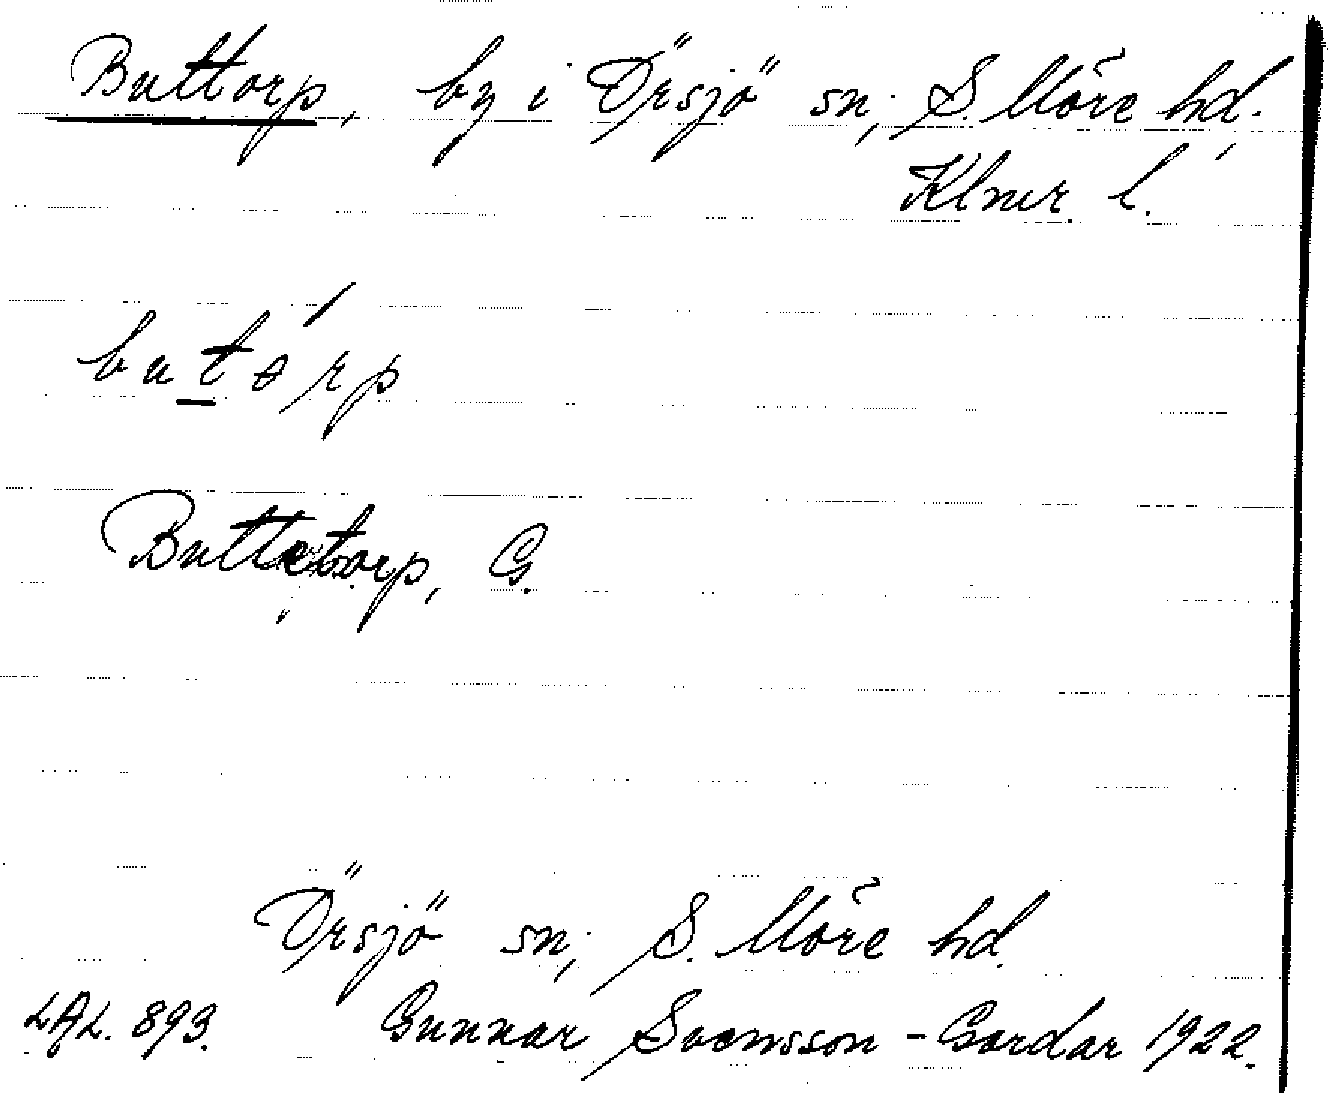 Buttorp, by i Örsjö sn, S. Möre hd.,
Klmr. l.
butórp
Buttetorp, G.
Örsjö sn, S. Möre hd.
LAL. 893. Gunnar Svensson - Gardar 1922.